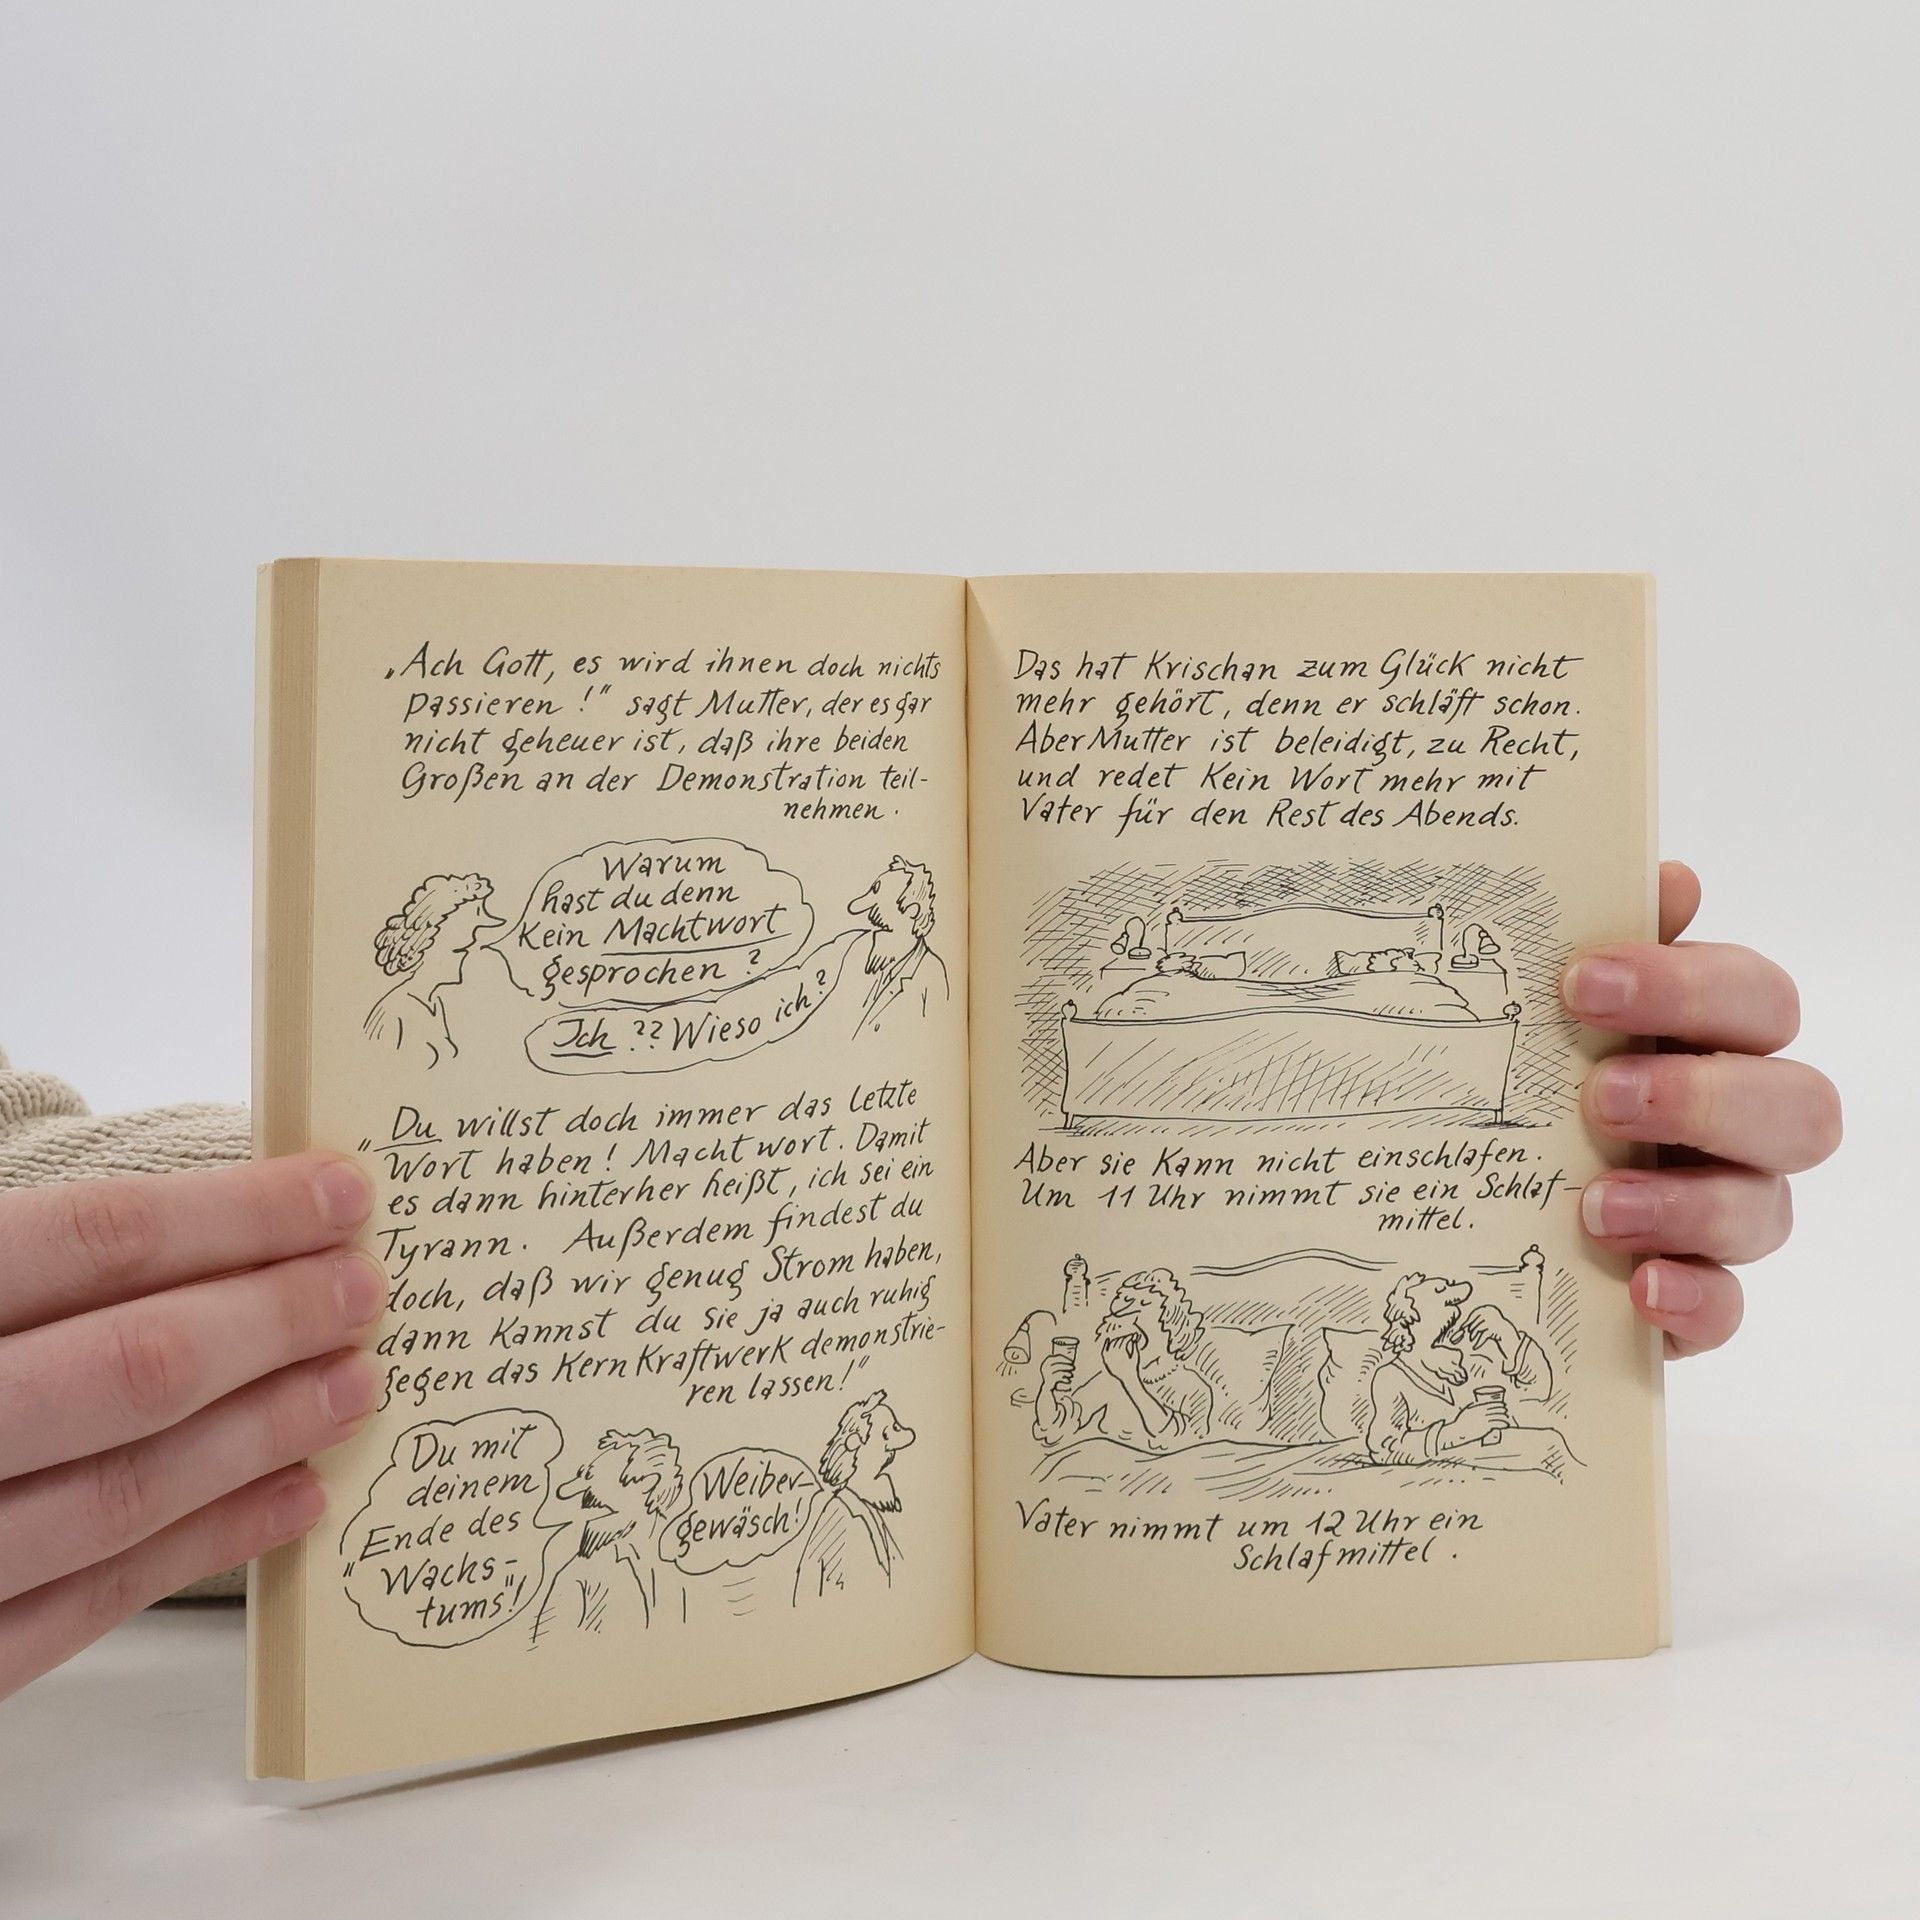 „Ach Gott, es wird ihnen doch nichts
passieren!" sagt Mutter, der es gar
nicht geheuer ist, daß ihre beiden
Großen an der Demonstration teil-
nehmen.
Warum
hast du denn
kein Machtwort
gesprochen?
Ich ?? Wieso ich?
„Du willst doch immer das letzte
Wort haben! Machtwort. Damit
es dann hinterher heißt, ich sei ein
Tyrann. Außerdem findest du
doch, daß wir genug Strom haben,
dann kannst du sie ja auch ruhig
gegen das Kernkraftwerk demonstrie-
ren lassen!"
Du mit
deinem
Ende des
„Wachs-
tums"!
Weiber-
gewäsch!
Das hat Krischan zum Glück nicht
mehr gehört, denn er schläft schon.
Aber Mutter ist beleidigt, zu Recht,
und redet kein Wort mehr mit
Vater für den Rest des Abends.
Aber sie kann nicht einschlafen.
Um 11 Uhr nimmt sie ein Schlaf-
mittel.
Vater nimmt um 12 Uhr ein
Schlafmittel.